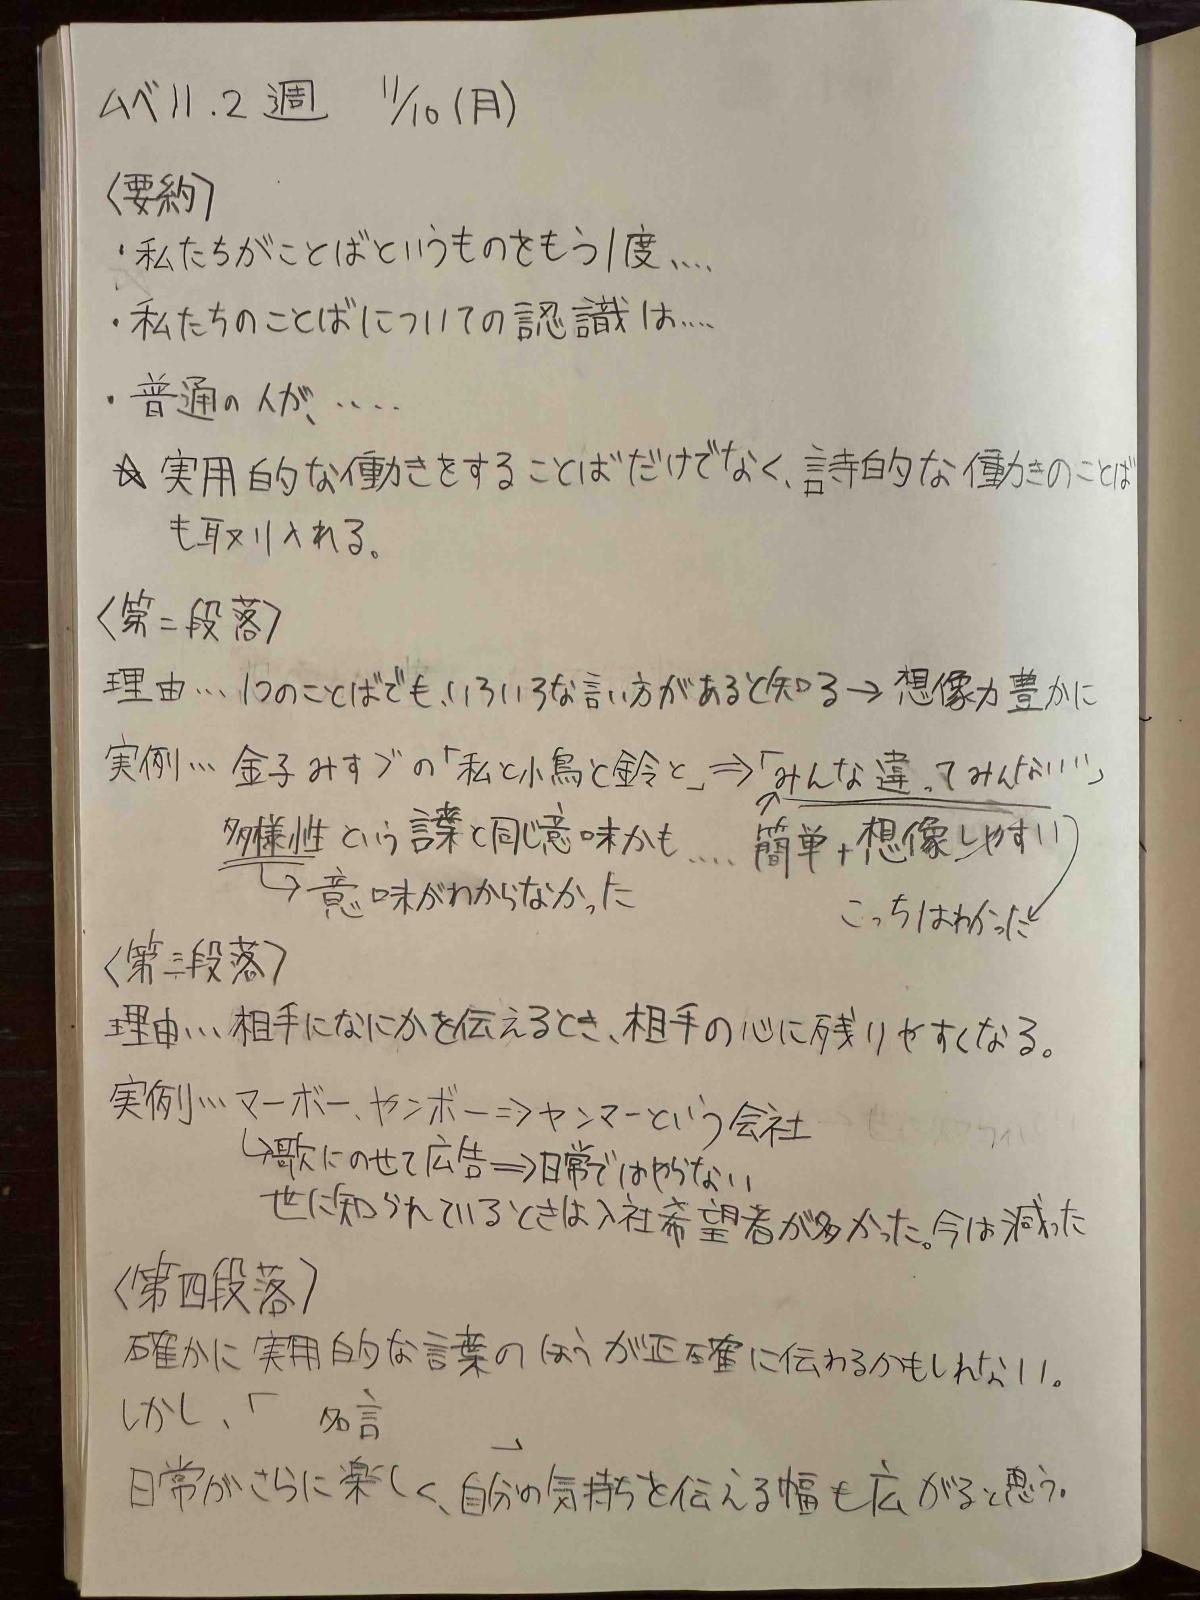 ムベ11.2週 11/10(月)
〈要約〉
・私たちがことばというものをもう1度....
・私たちのことばについての認識は....
・普通の人が、.....
☆実用的な働きをすることばだけでなく、詩的な働きのことば
も取り入れる。
〈第二段落〉
理由...1つのことばでも、いろいろな言い方があると知る→想像力豊かに
実例...金子みすゞの「私と小鳥と鈴と」⇒「みんな違ってみんないい」
多様性という言葉と同じ意味かも....簡単+想像しやすい
意味がわからなかった
こっちはわかった
〈第三段落〉
理由...相手になにかを伝えるとき、相手の心に残りやすくなる。
実例...マーボー、ヤンボー⇒ヤンマーという会社
↳歌にのせて広告⇒日常ではやらない
世に知られているときは入社希望者が多かった。今は減った
〈第四段落〉
確かに実用的な言葉のほうが正確に伝わるかもしれない。
しかし、「 名言 」
日常がさらに楽しく、自分の気持ちを伝える幅も広がると思う。